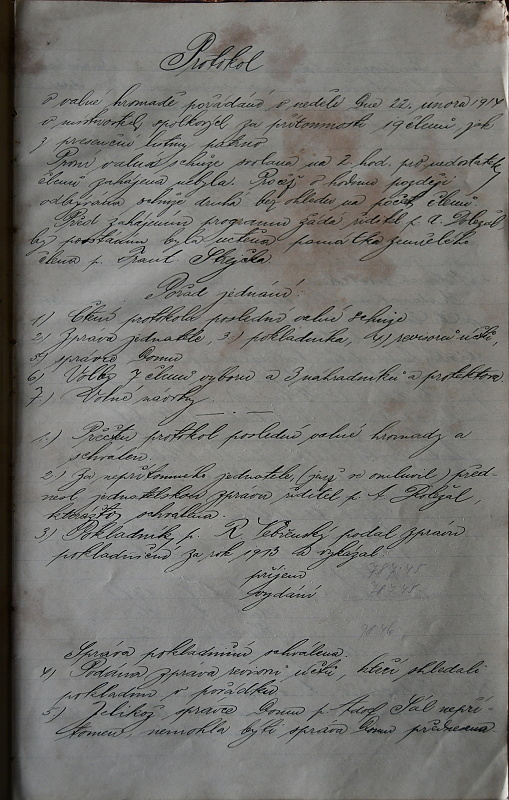 Protokol
o valné hromadě pořádané v neděli dne 22. února 1914
v místnostech spolkových za přítomnosti 19 členů, jak
z presenční listiny patrno
První valná schůze svolaná na 2. hod. pro nedostatek
členů zahájena nebyla. Pročež o hodinu později
odbývána schůze druhá bez ohledu na počet členů
Před zahájením programu žádá řiditel p. A. Doležal
by povstáním byla uctěna památka zemřelého
člena p. Frant.
Pořad jednání:
1) Čtení protokolu poslední valné schůze
2) Zpráva jednatele, 3) pokladníka, 4) revisorů účtů,
5) správce domu
6) Volby 7 členů výboru a 3 náhradníků a protektora
7) Volné návrhy
1.) Přečten protokol poslední valné hromady a
schválen.
2.) Za nepřítomného jednatele, (jenž se omluvil) před-
nesl jednatelskou zprávu řiditel p. A. Doležal,
kterážto schválena.
3) Pokladník p. R. podal zprávu
pokladniční za rok 1913 a vykázal
příjem 787·45
vydání 787·45
Zpráva pokladniční schválena.
4) Podána zpráva revisorů účtů, kteří shledali
pokladnu v pořádku
5) Jelikož správce domu p. Adolf Sál nepří-
tomen, nemohla býti zpráva domu přednesena